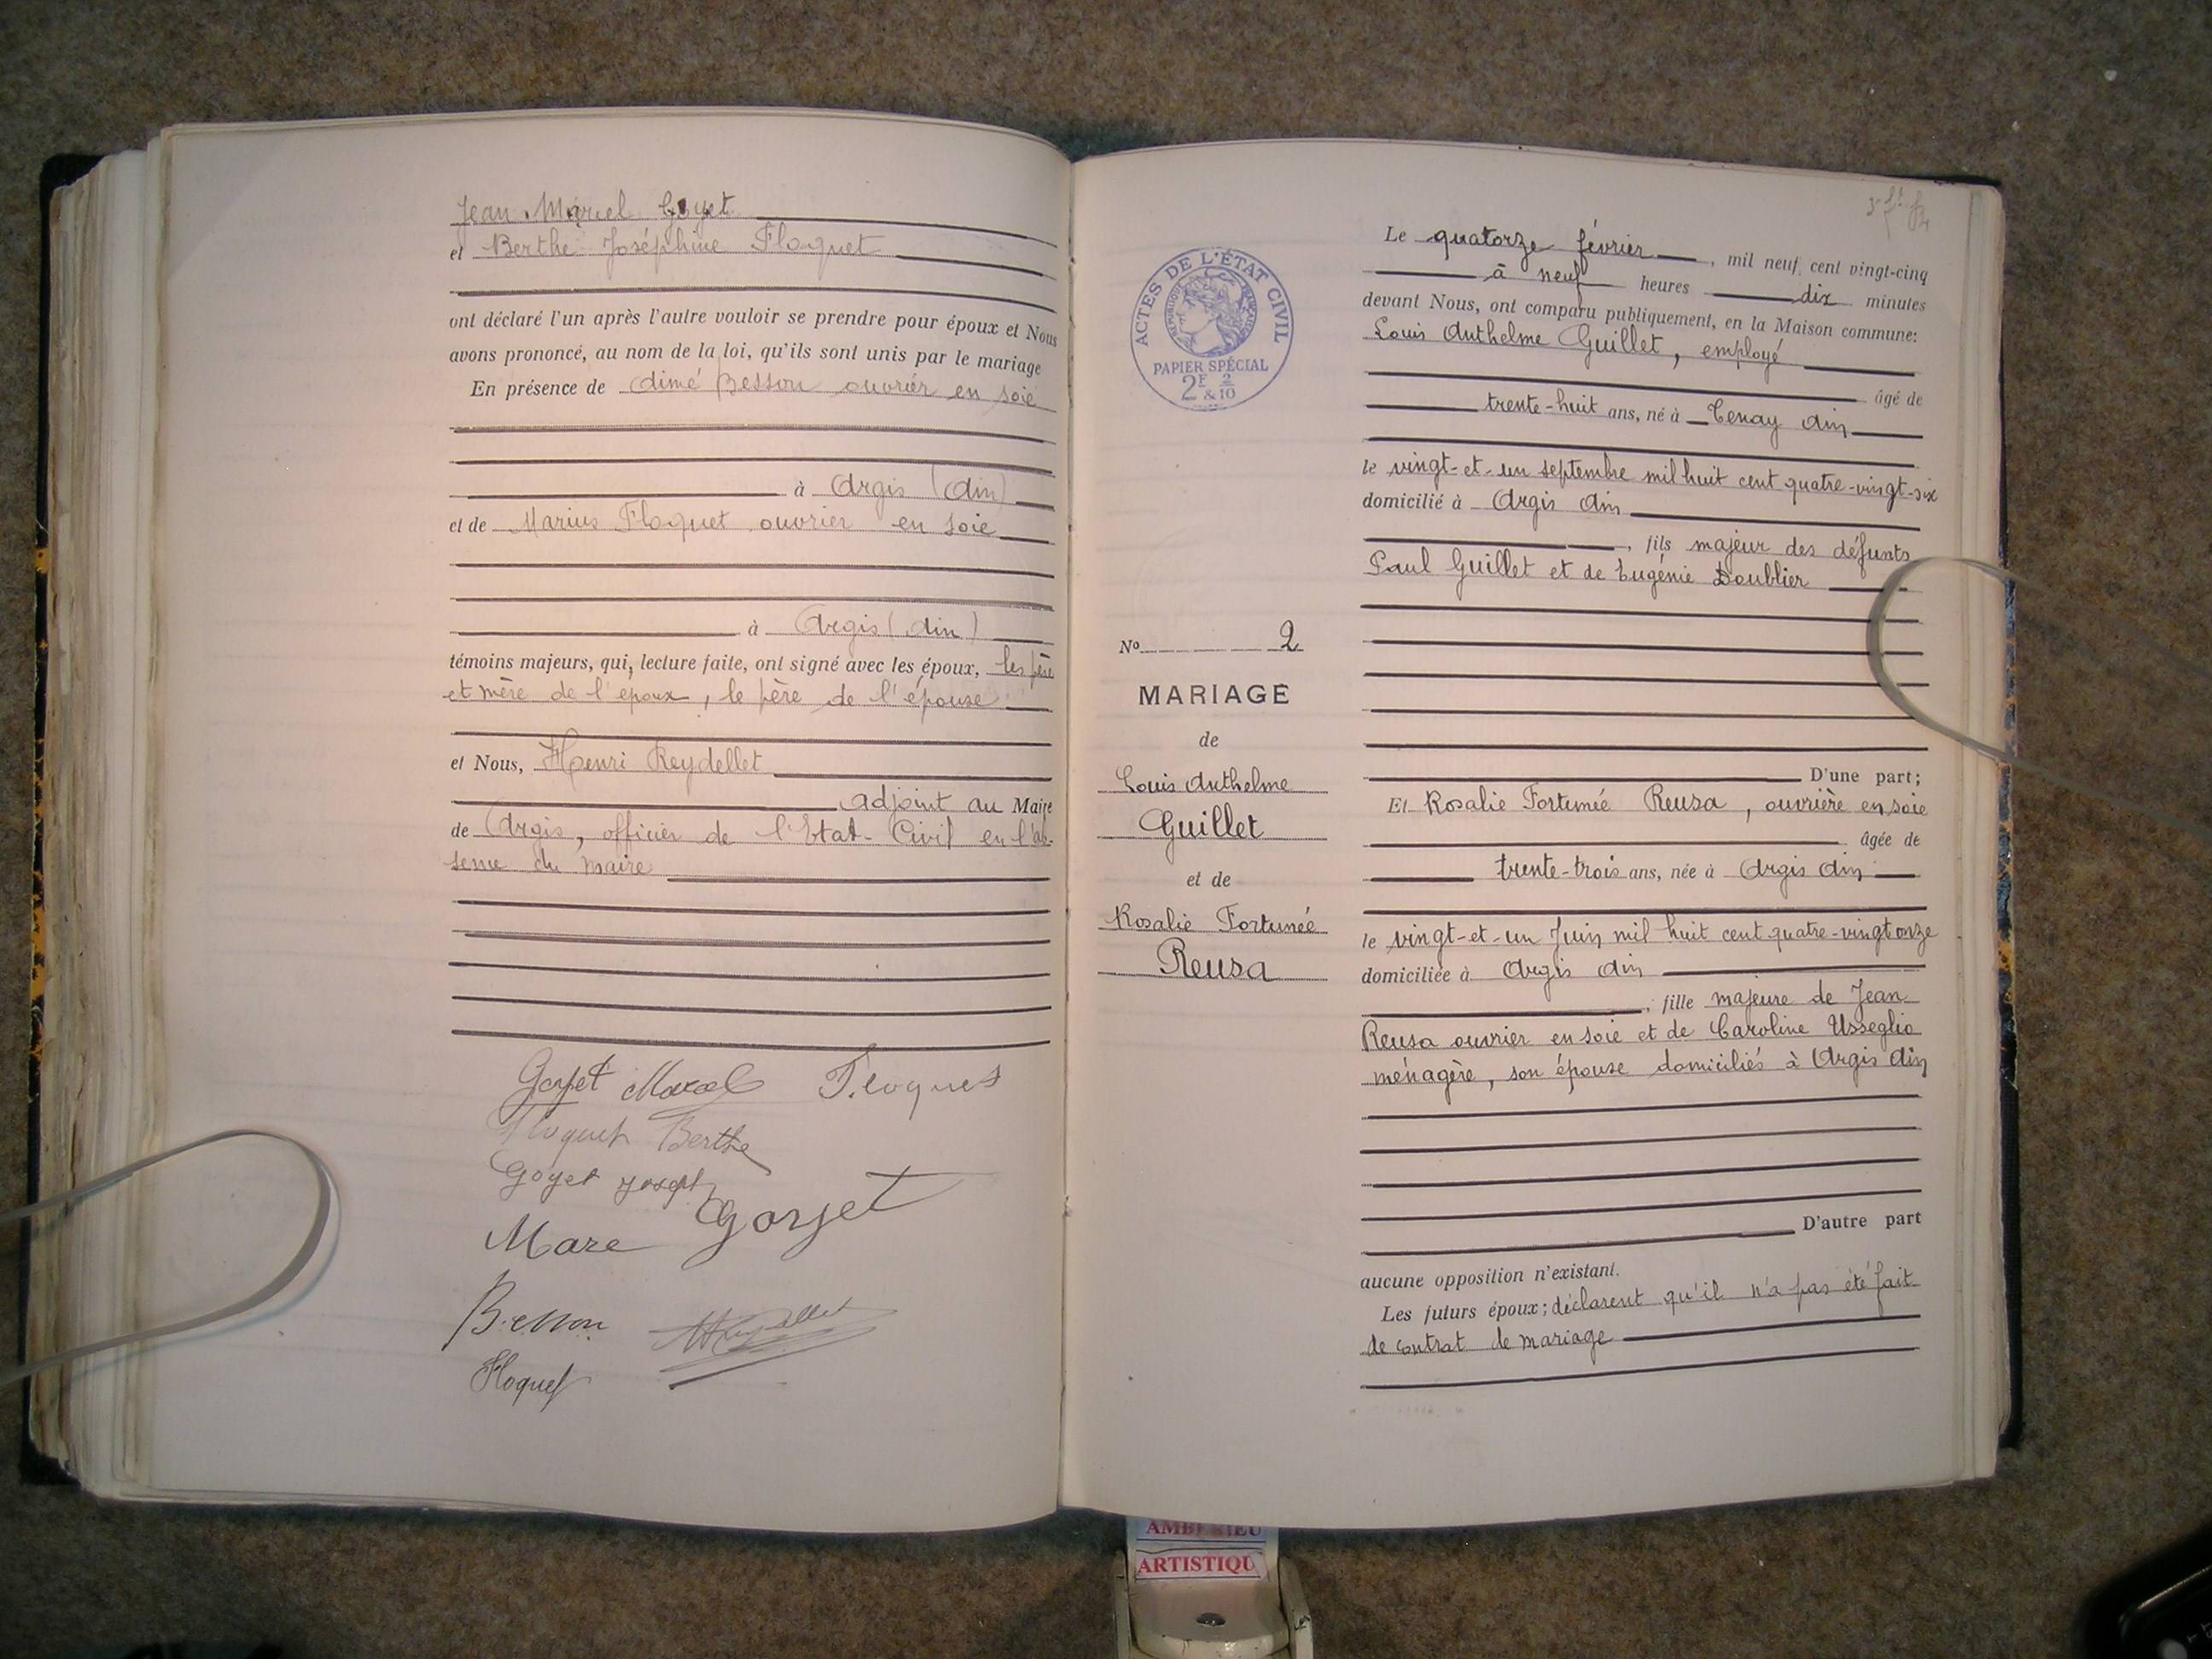 Jean Marcel Goyet
et Berthe Joséphine Floquet
ont déclaré l'un après l'autre vouloir se prendre pour époux et Nous
avons prononcé, au nom de la loi, qu'ils sont unis par le mariage
En présence de Aimé Besson ouvrier en soie
à Argis (Ain)
et de Marius Floquet ouvrier en soie
à Argis (Ain)
témoins majeurs, qui, lecture faite, ont signé avec les époux, les père
et mère de l'époux, le père de l'épouse
et Nous, Henri Reydellet
adjoint au Maire
de Argis, officier de l'Etat-Civil en l'ab-
sence du maire
Goyet Marcel Floquet
Floquet Berthe
Goyet Joseph
Mare Goyet
Besson
Floquet
Le quatorze février, mil neuf cent vingt-cinq
à neuf heures dix minutes
devant Nous, ont comparu publiquement, en la Maison commune:
Louis Anthelme Guillet, employé
âgé de
trente-huit ans, né à Tenay Ain
le vingt-et-un septembre mil huit cent quatre-vingt-six
domicilié à Argis Ain
, fils majeur des défunts
Paul Guillet et de Eugénie Doublier
D'une part;
Et Rosalie Fortunée Reusa, ouvrière en soie
âgée de
trente-trois ans, née à Argis Ain
le vingt-et-un Juin mil huit cent quatre-vingt onze
domiciliée à Argis Ain
, fille majeure de Jean
Reusa ouvrier en soie et de Caroline Usseglio
ménagère, son épouse domiciliés à Argis Ain
D'autre part
aucune opposition n'existant.
Les futurs époux; déclarent qu'il n'a pas été fait
de contrat de mariage
ACTES DE L'ÉTAT CIVIL
RÉPUBLIQUE FRANÇAISE
PAPIER SPÉCIAL
2F & 2/10
No 2
MARIAGE
de
Louis Anthelme
Guillet
et de
Rosalie Fortunée
Reusa
AMBERIEU
ARTISTIQU